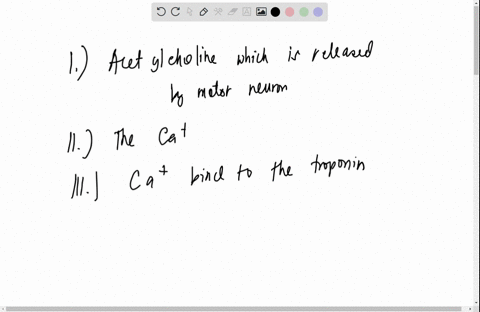 I.) Acetylcholine which is released
by motor neuron
II.) The Ca+
III.) Ca+ bind to the troponin